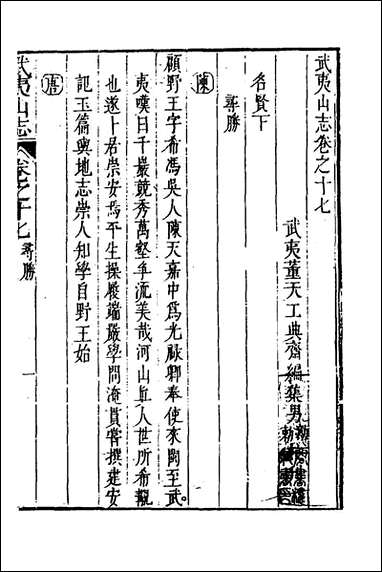 武夷山志卷之十七
武夷董天工典齋編集男
名賢下
尋勝
陳
顧野王字希馮吳人陳天嘉中爲光祿卿奉使來閩至武
夷嘆曰千巖競秀萬壑爭流美哉河山眞人世所希覯
也遂卜居崇安焉平生操履端嚴學問淹貫嘗撰建安
記玉篇輿地志崇人知學自野王始
唐
武夷山志
卷之十七
尋勝
一